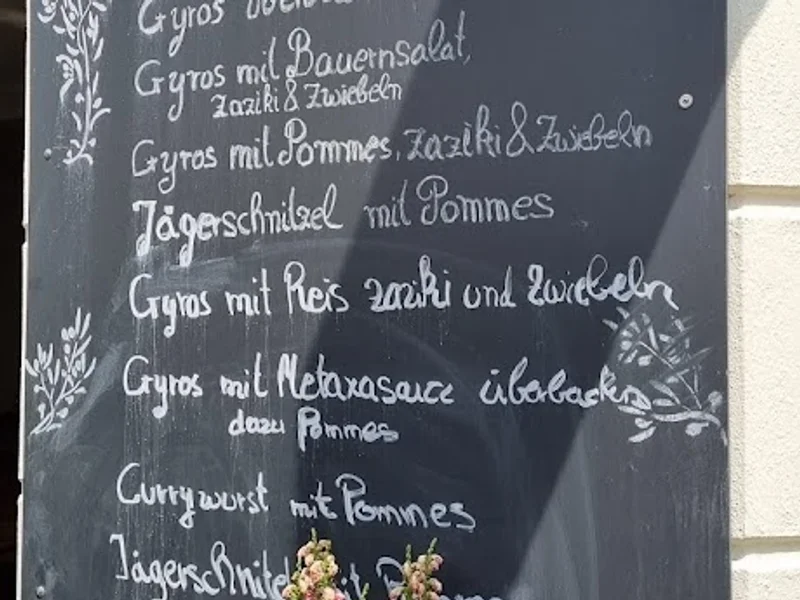 Gyros
Gyros mit Bauernsalat,
Zaziki & Zwiebeln
Gyros mit Pommes, Zaziki & Zwiebeln
Jägerschnitzel mit Pommes
Gyros mit Reis zaziki und Zwiebeln
Gyros mit Metaxasauce überbacken
dazu Pommes
Currywurst mit Pommes
Jägerschnitzel mit Pommes